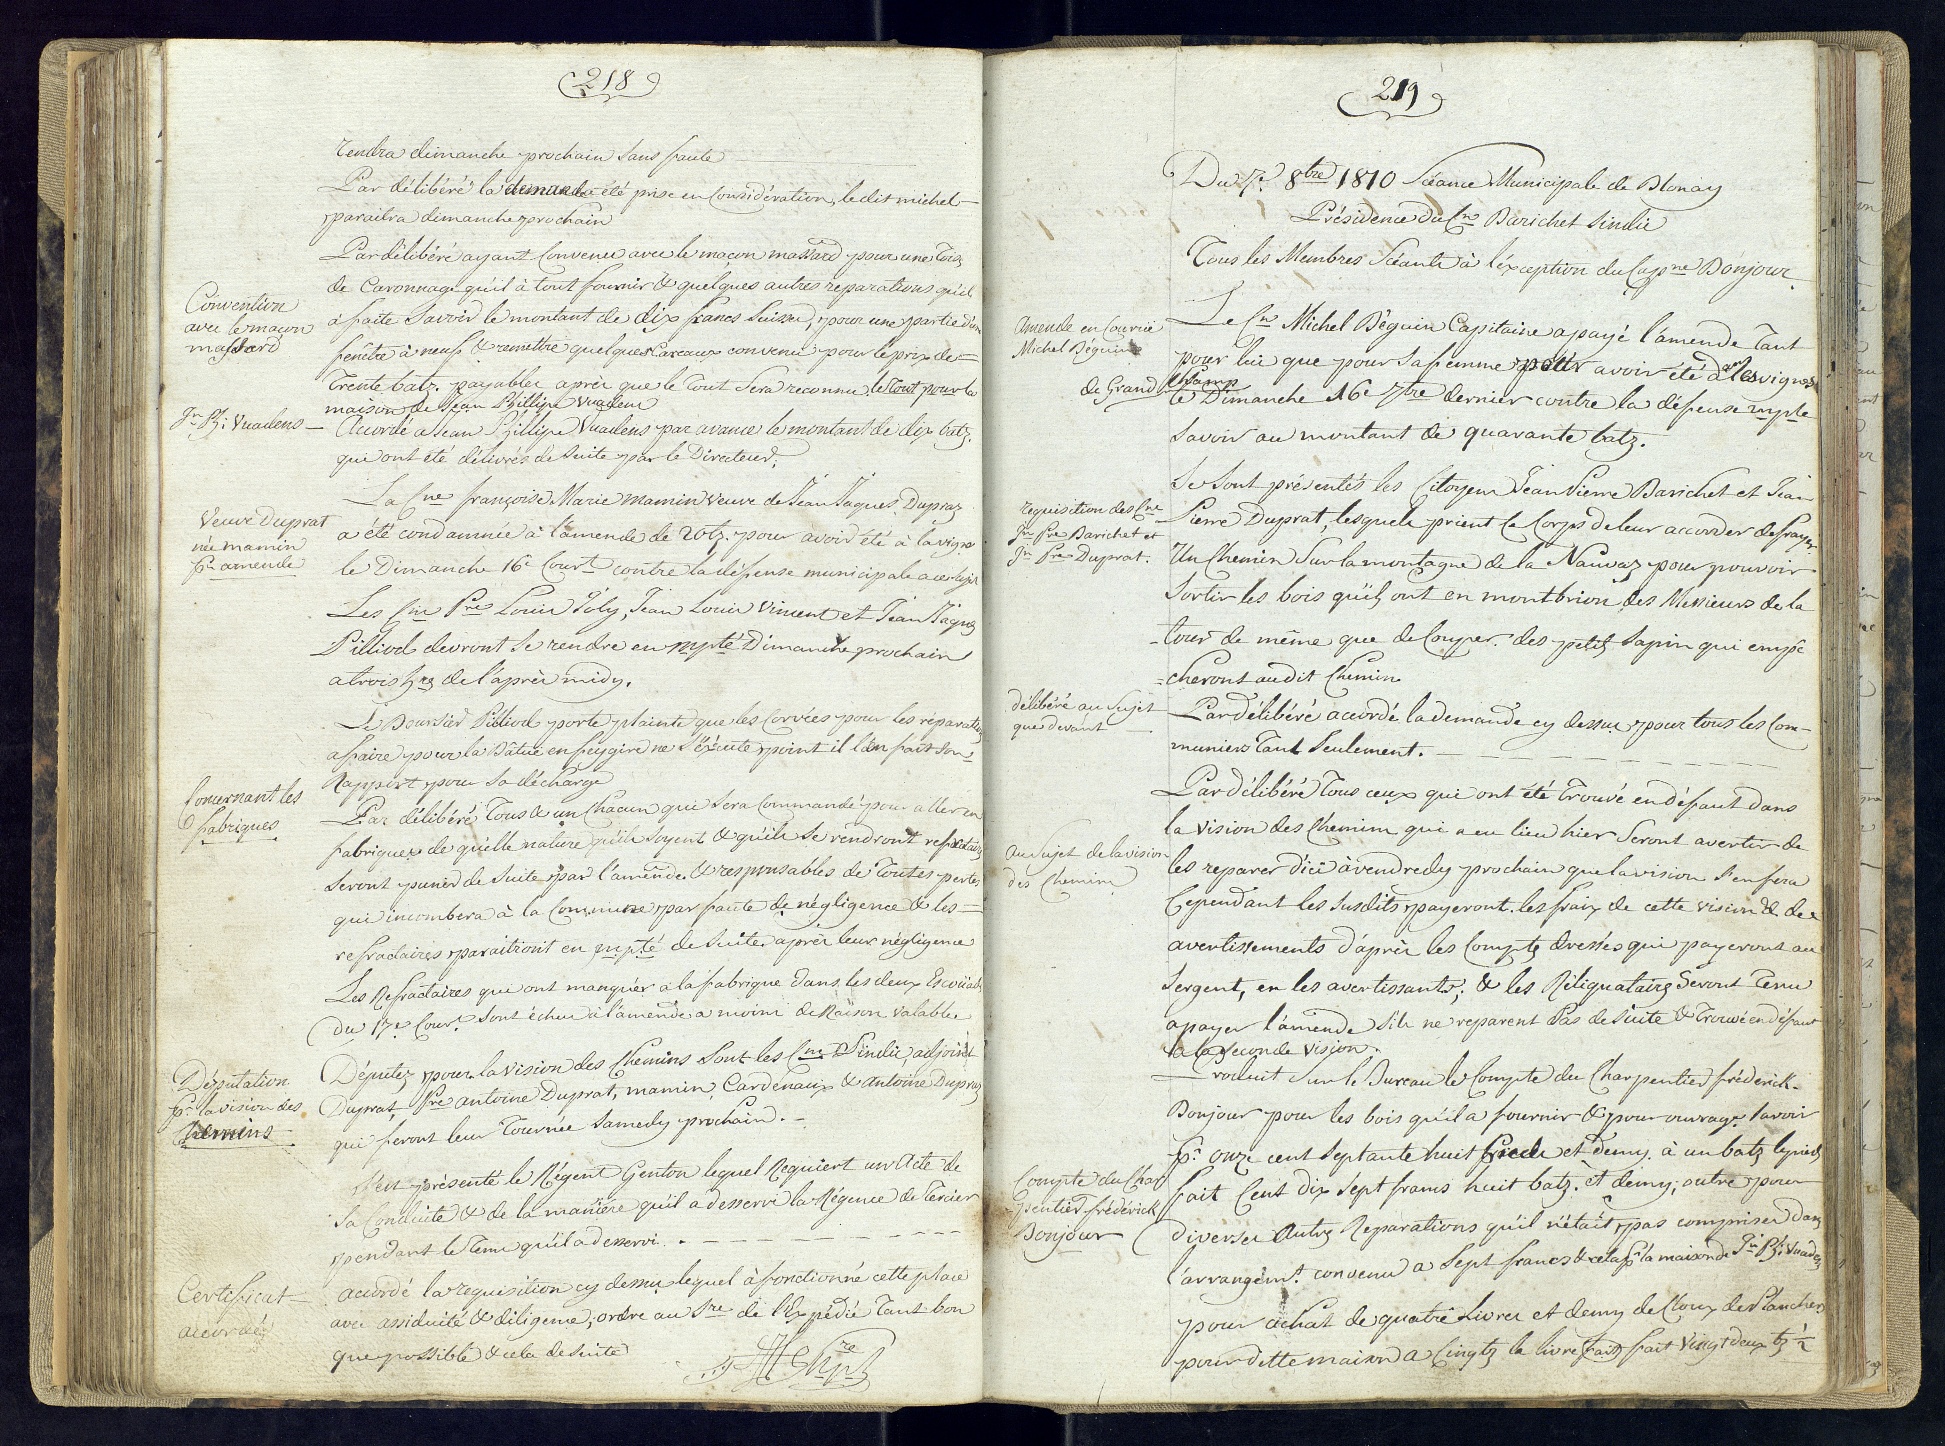 218
rendra dimanche prochain sans faute
Par délibéré la demande été prise en Considération, le dit michel
paraitra dimanche prochain
Par délibéré ayant Convenu avec le maçon massard pour une Toise
de Caronnage qu'il à tout fournir & quelques autres reparations qu'il
à faite Savoir le montant de dix francs Suisse, pour une partie d'une
fenêtre à neuf & remettre quelques Careaux convenu pour le prix de
Trente batz. payables après que le Tout Sera reconnu, le tout pour la
maison de Jean Phillipe Vuadens
Convention
avec le maçon
massard
Jn Ph: Vuadens
Accordé a Jean Phillipe Vuadens par avance le montant de dix batz.
qui ont été délivrés de Suite par le Directeur.
La Cne françoise Marie Mamin veuve de Jean Jaques Dupraz
a été condamnée à l'amende de 20 bz. pour avoir été à la vigne
le Dimanche 16e Court contre la défense municipale a ce sujet
Veuve Duprat
née mamin
pr amende
Les Cns Pre Louis Joly, Jean Louis Vincent et Jean Jaques
Pilliod devront se rendre en mpté Dimanche prochain
a trois hres de l'après midy.
Le Boursier Pilliod porte plainte que les Corvées pour les réparations
a faire pour la Bâtie en feygire ne S'exécute point il l'en fait son
Rapport pour sa décharge
Concernant les
fabriques
Par délibéré Tous & un Chacun qui Sera Commandé pour aller en
fabriques de quelle nature qu'ils soyent & qu'ils se rendront refractaires
Seront punis de Suite par l'amende & responsables de Toutes pertes
qui incombera à la Commune par faute de négligence & les
refractaires paraitront en mpté de Suite après leur négligence
Les Refractaires que ont manquér a la fabrique dans les deux Escouades
du 17e Court Sont échu à l'amende a moins de Raison valable.
Députation
pr la vision des
Chemins
Députez pour la vision des Chemins Sont les Cns Sindic, adjoint
Duprat, Pre antoine Duprat, mamin, Cardenaux & antoine Dupraz
qui feront leur Tournée Samedy prochain. -
S'est présenté le Régent Genton lequel Requiert un Acte de
Sa Conduite & de la manière qu'il a desservi la Régence de Tercier
pendant le Tems qu'il a desservi.
Certificat
accordé
accordé la requisition cy dessus lequel à fonctionné cette place
avec assiduité & diligence, ordre au Sre de l'Expédié Tant bon
que possible & cela de Suite
219
Du 7e 8bre 1810 Séance Municipale de Blonay
Présidence du Cn Barichet Sindic
Tous les Membres Séants à l'éxception du Cn Bonjour
Amende encourue
Michel Béguin
de Grand Champ
Le Cn Michel Béguin Capitaine a payé l'amende Tant
pour lui que pour Sa femme pour avoir été dans les vignes
le Dimanche 16e 7bre dernier contre la défense mple
Savoir au montant de quarante batz.
requisition des Cns
Jn Pre Barichet et
Jn Pre Duprat.
Se Sont présentés les Citoyens Jean Pierre Barichet et Jean
Pierre Duprat, lesquels prient le Corps de leur accorder de frayer
Un Chemin Sur la montagne de la Nauvaz pour pouvoir
Sortir les bois qu'ils ont en montbrion, des Messieurs de la
tour de même que de Couper des petits Sapins qui empê
=cheront au dit Chemin
délibéré au Sujet
que devant
Par délibéré accordé la demande cy dessus pour tous les Com-
muniers Tant Seulement.
Au Sujet de la vision
des Chemins
Par délibéré Tous ceux qui ont été Trouvé en défaut dans
la vision des Chemins qui a eu lieu hier Seront avertir de
les reparer d'ici à vendredy prochain que la vision S'en fera
Cependant les Susdits payeront les fraix de cette vision & des
avertissements d'après les Compte dressés qui payeront au
Sergent, en les avertissants; & les Réliquataires Seront Tenu
a payer l'amende S'ils ne reparent Pas de Suite & Trouvé en défaut
a la Seconde vision.
Compte du Char
pentier frédérick
Bonjour
Produit Sur le Bureau le Compte du Charpentier frédérick
Bonjour pour les bois qu'il a fournir & pour ouvrage Savoir
pr onze cent Septante huit pieds et demy. à un batz le pied
fait Cent dix Sept francs huit batz. et demy; outre pour
diverses Autres Reparations qu'il n'était pas comprises dans
l'arrangemt. convenu a Sept francs & cela pr la maison de Jn Ph: Vuadens
pour achat de quatre Livres et demy de Cloux de Planches
pour ditte maison a Cinq bz la livre fait Vingt deux bz ½